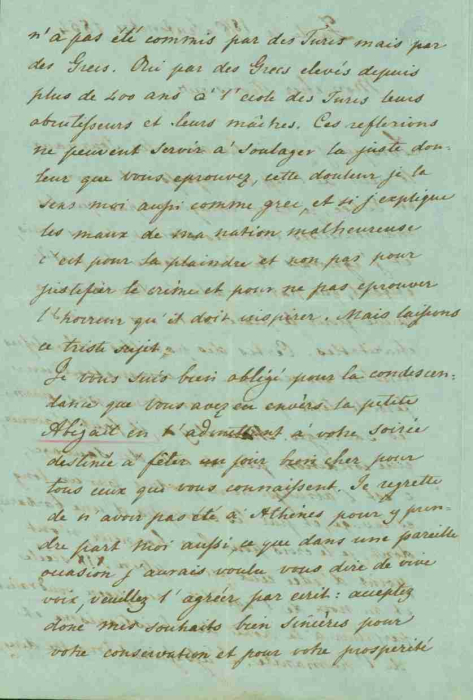 n'a pas été commis par des Turcs mais par
des Grecs. Oui par des Grecs elevés depuis
plus de 400 ans à l'ecole des Turcs leurs
abrutisseurs et leurs maîtres. Ces reflexions
ne peuvent servir à soulager la juste dou-
leur que vous eprouvez, cette douleur je la
sens moi aussi comme grec, et si j'explique
les maux de ma nation malheureuse
c'est pour la plaindre et non pas pour
justifier le crime et pour ne pas eprouver
l'horreur qu'il doit inspirer. Mais laissons
ce triste sujet.
Je vous suis bien obligé pour la condescen-
dance que vous avez eu envers la petite
en l'admettant à votre soirée
destinée à fêter un jour bien cher pour
tous ceux que vous connaissent. Je regrette
de n'avoir pas été à Athènes pour y pren-
dre part moi aussi, ce que dans une pareille
occasion j'aurais voulu vous dire de vive
voix, veuillez l'agréer par ecrit: acceptez
donc mes souhaits bien sincères pour
votre conservation et pour votre prosperité